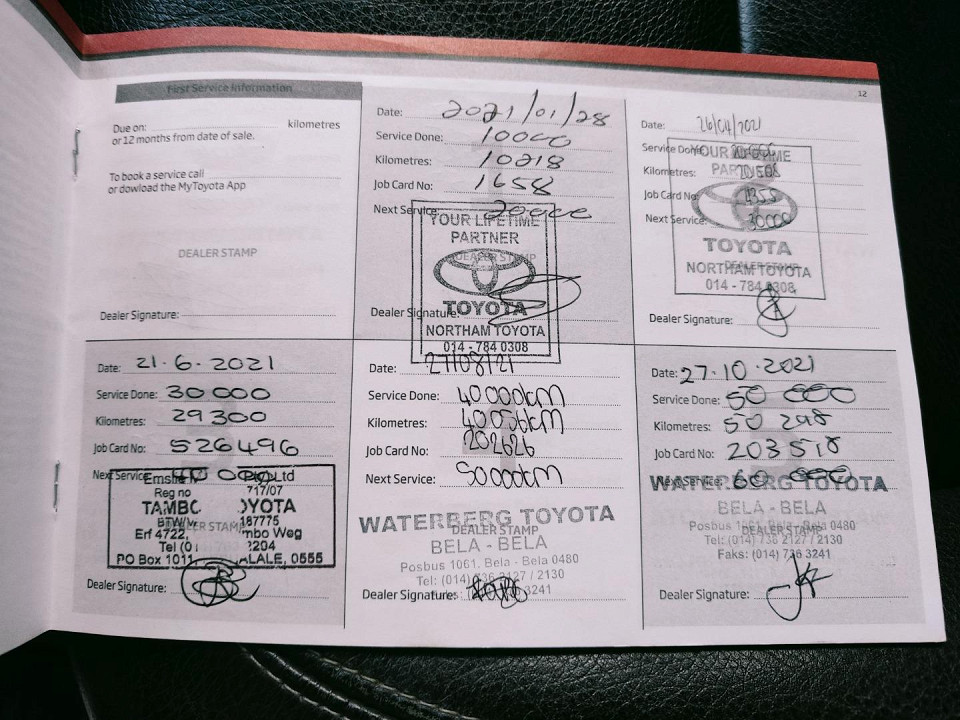 12
First Service Information
Due on: kilometres
or 12 months from date of sale.
To book a service call
or dowload the MyToyota App
DEALER STAMP
Dealer Signature:
Date: 2021/01/28
Service Done: 10000
Kilometres: 10218
Job Card No: 1658
Next Service: 20000
YOUR LIFETIME
PARTNER
DEALER STAMP
TOYOTA
Dealer Signature:
NORTHAM TOYOTA
014 - 784 0308
Date: 26/04/2021
Service Done:
YOUR LIFETIME
Kilometres:
PARTNER
Job Card No: 4355
Next Service: 30000
TOYOTA
DEALER STAMP
NORTHAM TOYOTA
014 - 784 0308
Dealer Signature:
Date: 21.6.2021
Service Done: 30 000
Kilometres: 29 300
Job Card No: 526496
Next Service: 40 000
Ltd
Reg no 717/07
TAMBO TOYOTA
187775
DEALER STAMP
Erf 4722, mbo Weg
Tel (0 204
PO Box 1011, ALALE, 0555
Dealer Signature:
Date: 27/08/21
Service Done: 40 000km
Kilometres: 40 056km
Job Card No: 202626
Next Service: 50 000km
WATERBERG TOYOTA
DEALER STAMP
BELA - BELA
Posbus 1061, Bela - Bela 0480
Tel: (014) 736 2127 / 2130
3241
Dealer Signature:
Date: 27.10.2021
Service Done: 50 000
Kilometres: 50 298
Job Card No: 203518
Next Service: 60 000
WATERBERG TOYOTA
BELA - BELA
Posbus 1061, Bela - Bela 0480
DEALER STAMP
Tel: (014) 736 2127 / 2130
Faks: (014) 736 3241
Dealer Signature: